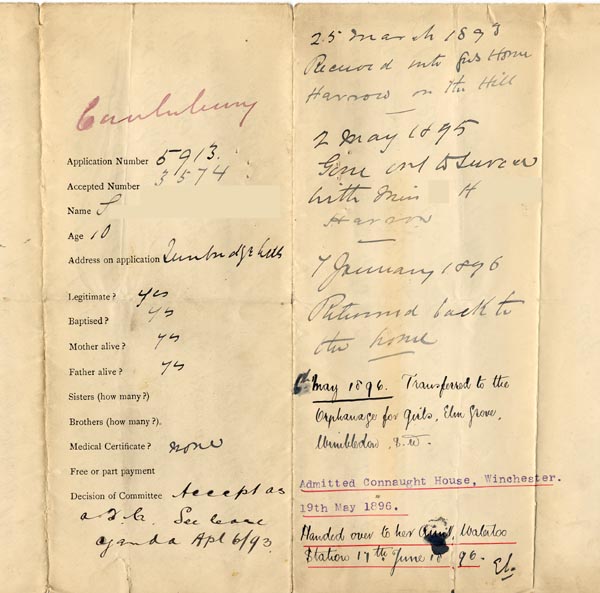 Canterbury
Application Number 5913.
Accepted Number 3574
Name S
Age 10
Address on application Tunbridge Wells
Legitimate? yes
Baptised? yes
Mother alive? yes
Father alive? yes
Sisters (how many?)
Brothers (how many?).
Medical Certificate? none
Free or part payment
Decision of Committee Accept as
a See case
agenda Apl 6/93
25 March 1893
Received into Girls Home
Harrow on the Hill
2 May 1895
Gone out to Service
with Miss H
Harrow
7 January 1896
Returned back to
the home
May 1896. Transferred to the
Orphanage for girls, Elm Grove,
Wimbledon, S.W.
Admitted Connaught House, Winchester.
19th May 1896.
Handed over to her Aunt, Wataloo
Station 17th June 1896.